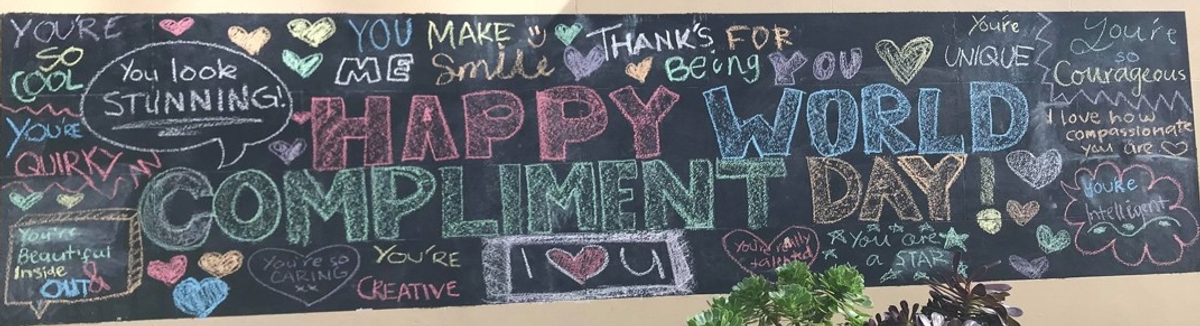 YOU'RE
SO
COOL
You look
STUNNING!
YOU MAKE
ME Smile
THANK'S FOR
Being YOU
You're
UNIQUE
You're
so
Courageous
YOU'RE
QUIRKY
HAPPY WORLD
COMPLIMENT DAY!
I love how
compassionate
you are
You're
Beautiful
Inside
OUT &
You're so
CARING
xx
YOU'RE
CREATIVE
I ♥ U
You're really
talented
You are
a STAR
You're
Intelligent